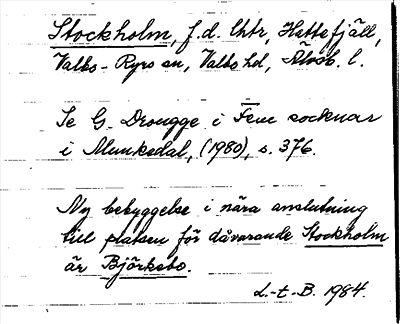 Stockholm, f.d. lhtr, Hattefjäll,
Valbo-Ryrs sn, Valbo hd, Älvsb. l.
Se G. Drougge i Fem socknar
i Munkedal, (1980), s. 376.
Ny bebyggelse i nära anslutning
till platsen för dåvarande Stockholm
är Björkebo.
L-t-B. 1984.